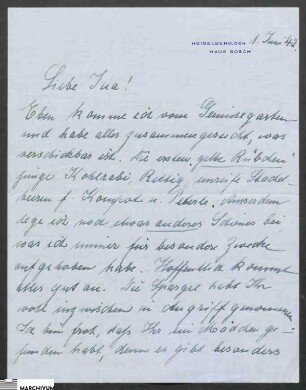 HEIDELBERG, DEN 1. Juni 43.
HAUS BOSCH
Liebe Ina!
Eben komme ich vom Gemüsegarten
und habe alles zusammengesucht, was
verschickbar ist. Die ersten gelbe Rübchen
junge Kohlrabi, Rettig, unreife Stachel-
beeren f. Kompott u. Ausserdem
lege ich noch etwas anderes Schönes bei
was ich immer für besondere Zwecke
aufgehoben habe. Hoffentlich kommt
alles gut an. Die Spargel habt Ihr
wohl inzwischen in Angriff genommen.
Ich bin froh, dass Ihr ein Mädchen ge-
funden habt, denn es gibt besonders
MARCHIVUM